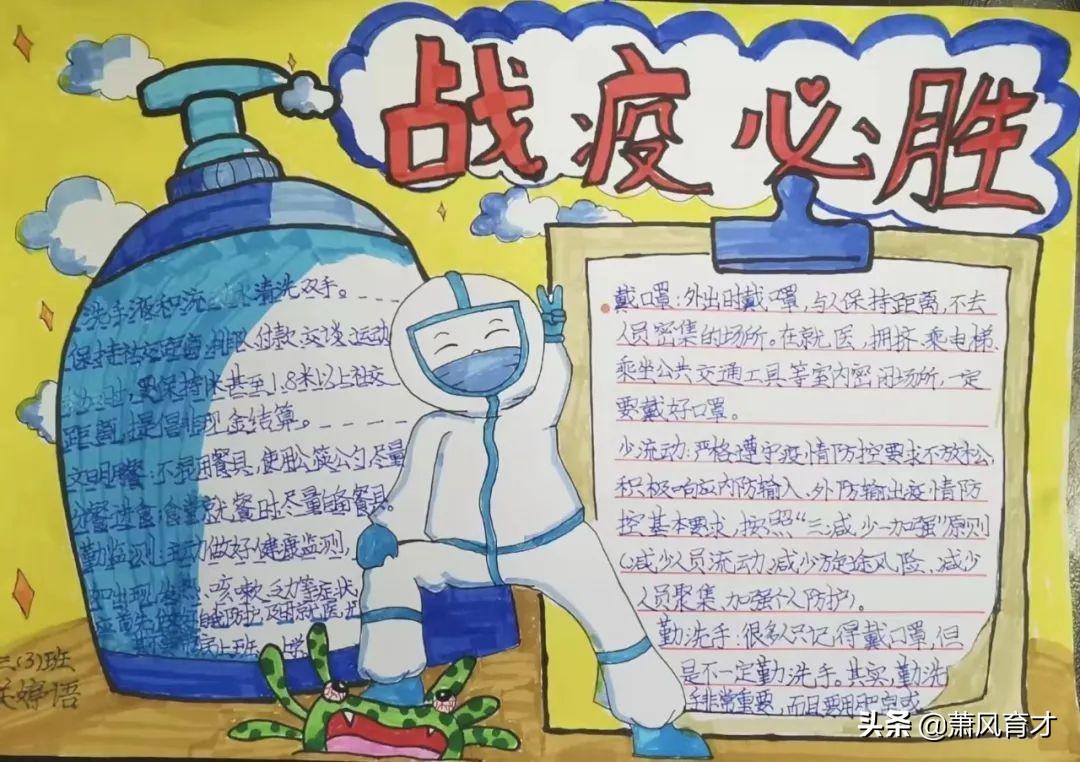 战疫必胜
戴口罩:外出时戴口罩,与人保持距离,不去
人员密集的场所。在就医,拥挤、乘电梯、
乘坐公共交通工具等室内密闭场所,一定
要戴好口罩。
少流动:严格遵守疫情防控要求不放松,
积极响应内防输入、外防输出疫情防
控基本要求,按照“三减少一加强”原则
(减少人员流动、减少旅途风险、减少
人员聚集、加强个人防护)。
勤洗手:很多人只记得戴口罩,但
是不一定勤洗手。其实,勤洗
手非常重要,而且要用
洗手液和流 水清洗双手。
保持社交距离:排队、付款、交谈、运动
时,要保持1米甚至1.8米以上社交
距离,提倡非现金结算。
文明餐:不混用餐具,使用公筷公勺尽量
分餐进食,食堂就餐时尽量自备餐具。
勤监测:主动做好健康监测,
如出现发热、咳嗽、乏力等症状
防护及时就医
上班、上学
三(3)班
婷语
头条 @萧风育才